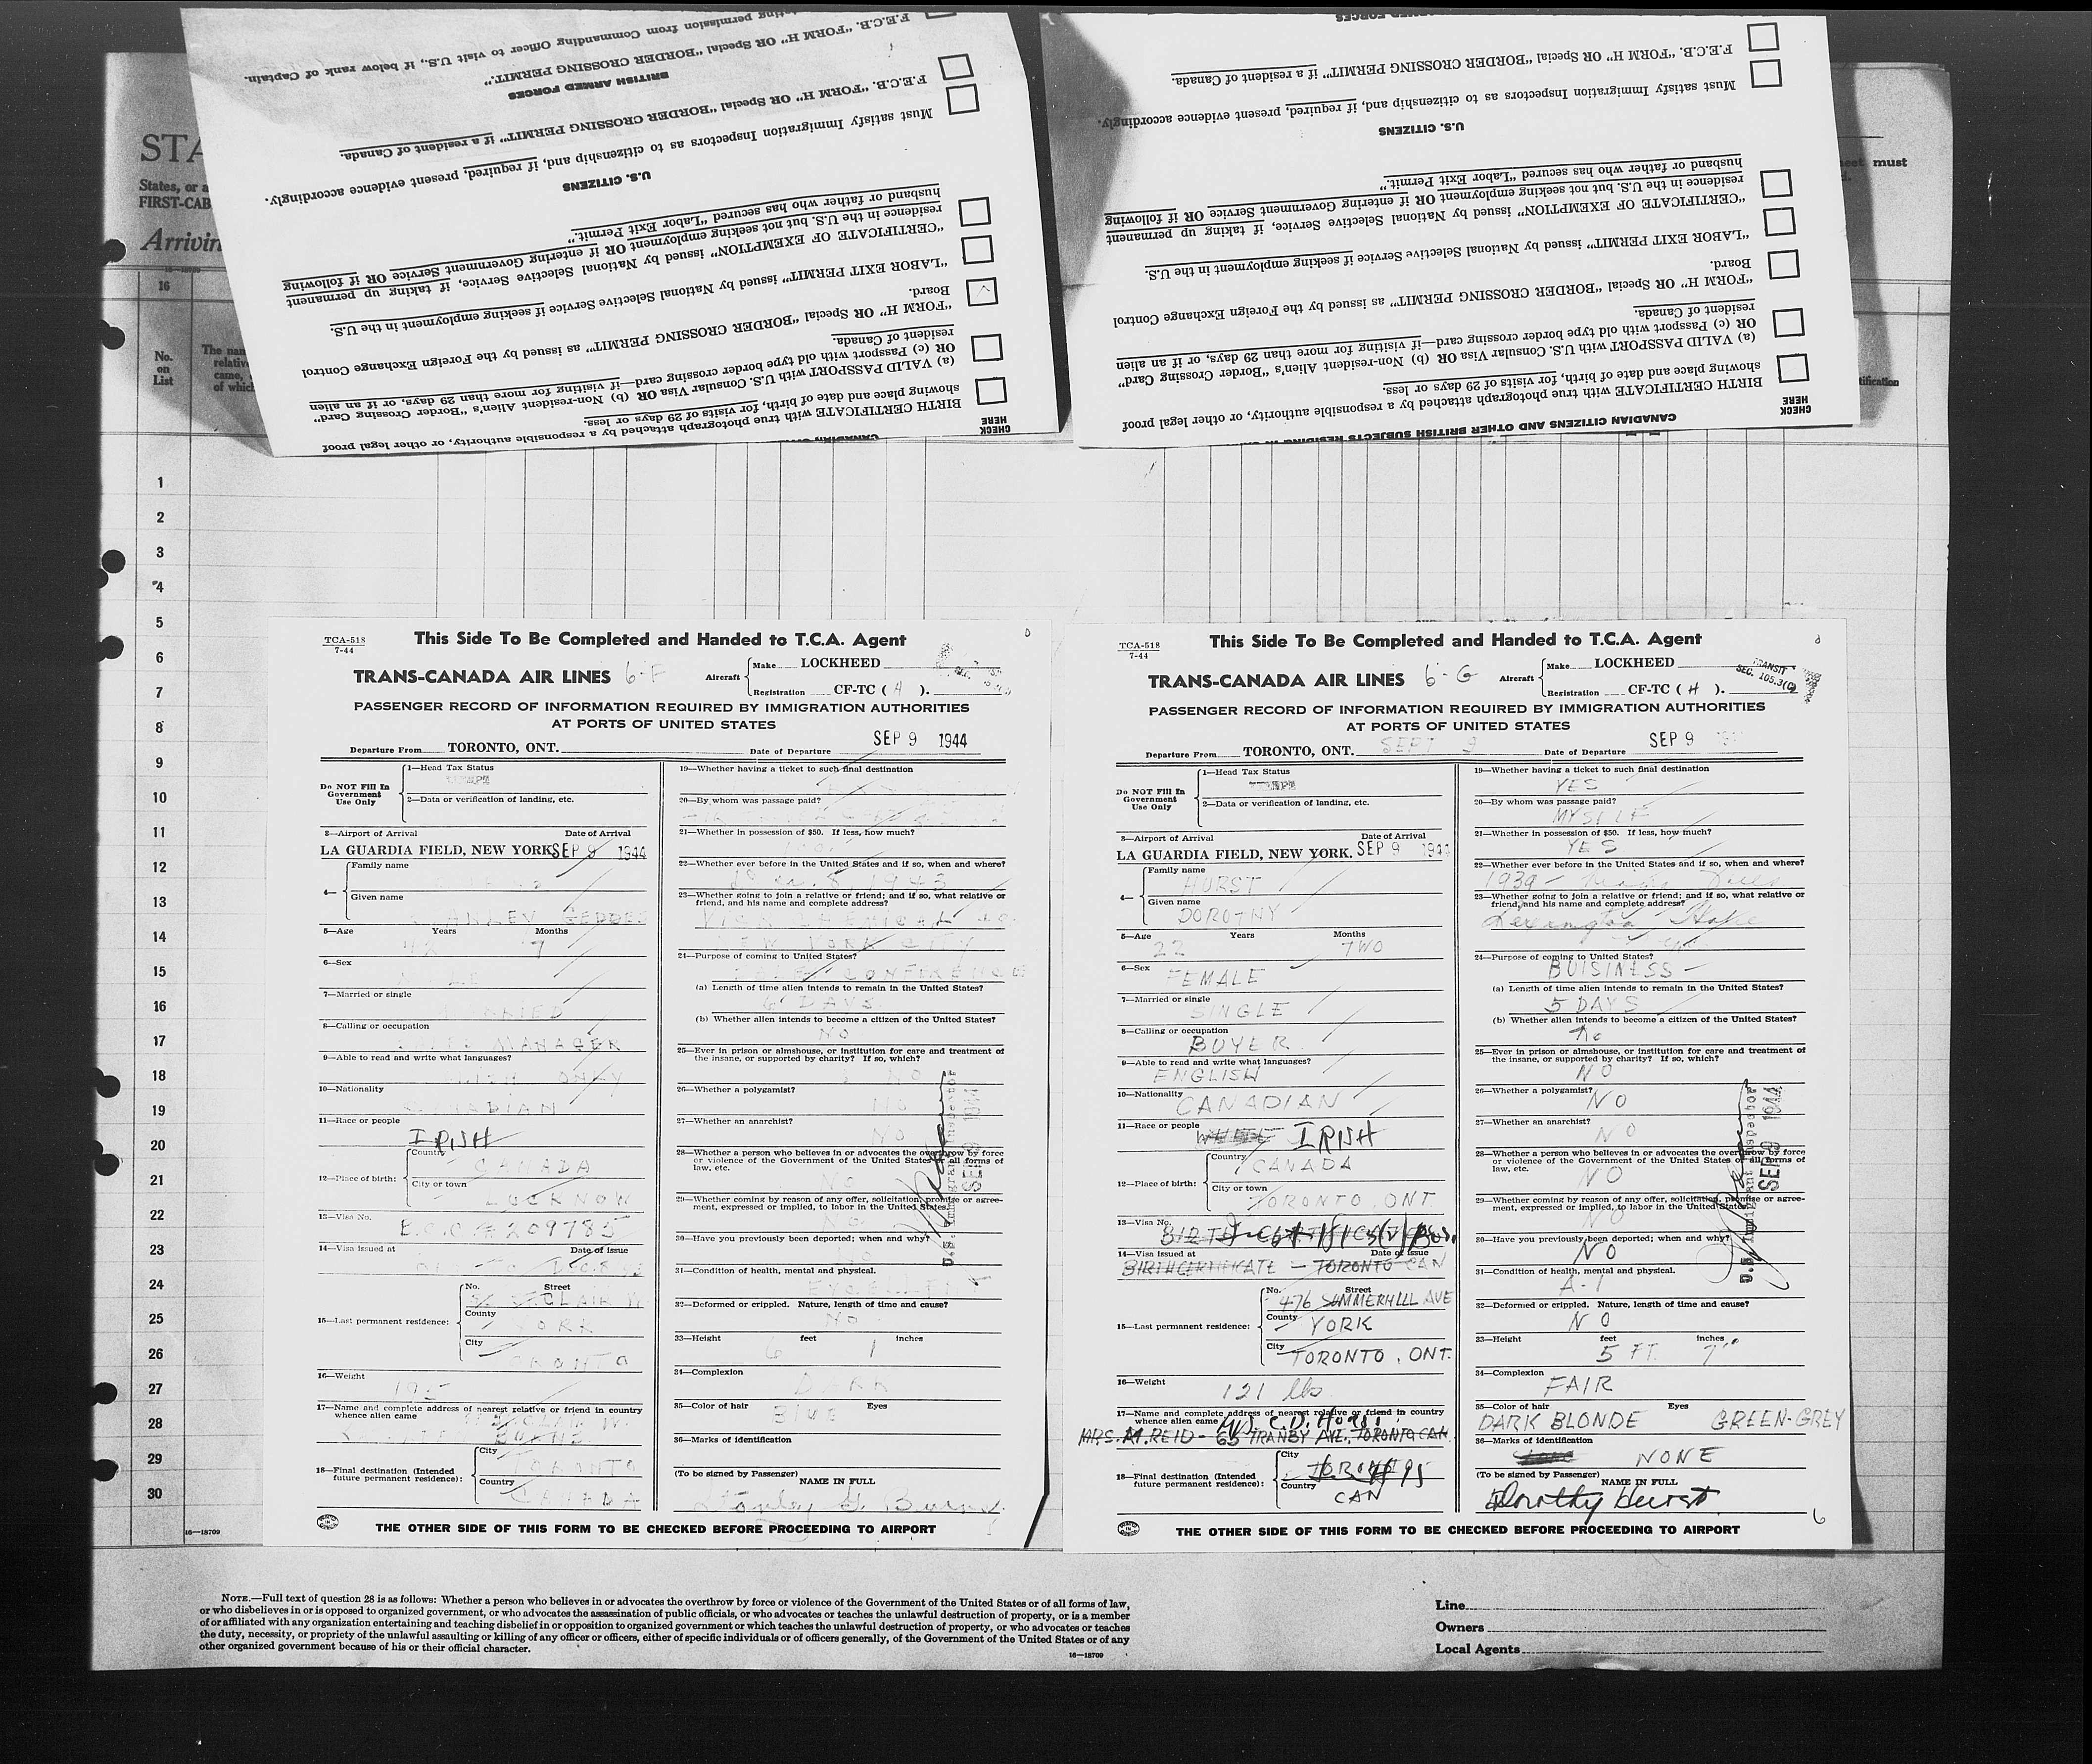 STA
States, or a
FIRST-CAB
Arrivin
16
No.
on
List
The nam
relative
came,
of which
eet must
tification
permission from Commanding Officer to visit U.S., if below rank of Captain.
F.E.C.B. "FORM H" OR Special "BORDER CROSSING PERMIT."
BRITISH ARMED FORCES
F.E.C.B. "FORM H" OR Special "BORDER CROSSING PERMIT" if a resident of Canada.
Must satisfy Immigration Inspectors as to citizenship and, if required, present evidence accordingly.
U.S. CITIZENS
husband or father who has secured "Labor Exit Permit."
residence in the U.S. but not seeking employment OR if entering Government Service OR if following
"CERTIFICATE OF EXEMPTION" issued by National Selective Service, if taking up permanent
"LABOR EXIT PERMIT" issued by National Selective Service if seeking employment in the U.S.
Board.
"FORM H" OR Special "BORDER CROSSING PERMIT" as issued by the Foreign Exchange Control
resident of Canada.
OR (c) Passport with old type border crossing card—if visiting for more than 29 days, or if an alien
(a) VALID PASSPORT with U.S. Consular Visa OR (b) Non-resident Alien's "Border Crossing Card"
showing place and date of birth, for visits of 29 days or less.
BIRTH CERTIFICATE with true photograph attached by a responsible authority, or other legal proof
CHECK
HERE
F.E.C.B. "FORM H" OR Special "BORDER CROSSING PERMIT" if a resident of Canada.
Must satisfy Immigration Inspectors as to citizenship and, if required, present evidence accordingly.
U.S. CITIZENS
husband or father who has secured "Labor Exit Permit."
residence in the U.S. but not seeking employment OR if entering Government Service OR if following
"CERTIFICATE OF EXEMPTION" issued by National Selective Service, if taking up permanent
"LABOR EXIT PERMIT" issued by National Selective Service if seeking employment in the U.S.
Board.
"FORM H" OR Special "BORDER CROSSING PERMIT" as issued by the Foreign Exchange Control
resident of Canada.
OR (c) Passport with old type border crossing card—if visiting for more than 29 days, or if an alien
(a) VALID PASSPORT with U.S. Consular Visa OR (b) Non-resident Alien's "Border Crossing Card"
showing place and date of birth, for visits of 29 days or less.
BIRTH CERTIFICATE with true photograph attached by a responsible authority, or other legal proof
CHECK
HERE
CANADIAN CITIZENS AND OTHER BRITISH SUBJECTS RESIDING IN
1
2
3
4
5
6
7
8
9
10
11
12
13
14
15
16
17
18
19
20
21
22
23
24
25
26
27
28
29
30
16—18709
TCA-518
7-44
This Side To Be Completed and Handed to T.C.A. Agent
TRANS-CANADA AIR LINES 6-F
Aircraft
Make LOCKHEED
Registration CF-TC ( H ).
PASSENGER RECORD OF INFORMATION REQUIRED BY IMMIGRATION AUTHORITIES
AT PORTS OF UNITED STATES
Departure From TORONTO, ONT. Date of Departure SEP 9 1944
Do NOT Fill In
Government
Use Only
1—Head Tax Status
2—Data or verification of landing, etc.
3—Airport of Arrival Date of Arrival
LA GUARDIA FIELD, NEW YORK SEP 9 1944
4—
Family name
Given name
STANLEY GEDDES
5—Age Years Months
42 7
6—Sex
7—Married or single
MARRIED
8—Calling or occupation
MANAGER
9—Able to read and write what languages?
ENGLISH ONLY
10—Nationality
CANADIAN
11—Race or people
IRISH
12—Place of birth:
Country
CANADA
City or town
LUCKNOW
13—Visa No.
209785
14—Visa issued at Date of issue
15—Last permanent residence:
No. Street
ST. CLAIR W
County
YORK
City
TORONTO
16—Weight
195
17—Name and complete address of nearest relative or friend in country
whence alien came
18—Final destination (Intended
future permanent residence):
City
TORONTO
Country
CANADA
19—Whether having a ticket to such final destination
20—By whom was passage paid?
21—Whether in possession of $50. If less, how much?
22—Whether ever before in the United States and if so, when and where?
1943
23—Whether going to join a relative or friend; and if so, what relative or
friend, and his name and complete address?
NEW YORK CITY
24—Purpose of coming to United States?
CONFERENCE
(a) Length of time alien intends to remain in the United States?
6 DAYS
(b) Whether alien intends to become a citizen of the United States?
NO
25—Ever in prison or almshouse, or institution for care and treatment of
the insane, or supported by charity? If so, which?
NO
26—Whether a polygamist?
NO
27—Whether an anarchist?
NO
28—Whether a person who believes in or advocates the overthrow by force
or violence of the Government of the United States or all forms of
law, etc.
NO
29—Whether coming by reason of any offer, solicitation, promise or agree-
ment, expressed or implied, to labor in the United States?
NO
30—Have you previously been deported; when and why?
NO
31—Condition of health, mental and physical.
EXCELLENT
32—Deformed or crippled. Nature, length of time and cause?
NO
33—Height feet inches
6 1
34—Complexion
DARK
35—Color of hair Eyes
BLUE
36—Marks of identification
(To be signed by Passenger)
NAME IN FULL
Stanley G. Burns
U.S. Immigrant Inspector
SEP 9 1944
THE OTHER SIDE OF THIS FORM TO BE CHECKED BEFORE PROCEEDING TO AIRPORT
TCA-518
7-44
This Side To Be Completed and Handed to T.C.A. Agent
TRANS-CANADA AIR LINES 6-G
Aircraft
Make LOCKHEED
Registration CF-TC ( H ).
TRANSIT
SEC. 105.3(C)
PASSENGER RECORD OF INFORMATION REQUIRED BY IMMIGRATION AUTHORITIES
AT PORTS OF UNITED STATES
Departure From TORONTO, ONT. SEPT 9 Date of Departure SEP 9
Do NOT Fill In
Government
Use Only
1—Head Tax Status
2—Data or verification of landing, etc.
3—Airport of Arrival Date of Arrival
LA GUARDIA FIELD, NEW YORK. SEP 9 1944
4—
Family name
HURST
Given name
DOROTHY
5—Age Years Months
22 TWO
6—Sex
FEMALE
7—Married or single
SINGLE
8—Calling or occupation
BUYER
9—Able to read and write what languages?
ENGLISH
10—Nationality
CANADIAN
11—Race or people
IRISH
12—Place of birth:
Country
CANADA
City or town
TORONTO, ONT
13—Visa No.
BIRTH CERTIFICATE
14—Visa issued at Date of issue
BIRTH CERTIFICATE — TORONTO CAN
15—Last permanent residence:
No. Street
476 SUMMERHILL AVE
County
YORK
City
TORONTO, ONT.
16—Weight
121 lbs
17—Name and complete address of nearest relative or friend in country
whence alien came
MRS. M. REID - 65 TRANBY AVE., TORONTO CAN.
18—Final destination (Intended
future permanent residence):
City
TORONTO
Country
CAN
19—Whether having a ticket to such final destination
YES
20—By whom was passage paid?
MYSELF
21—Whether in possession of $50. If less, how much?
YES
22—Whether ever before in the United States and if so, when and where?
1939 —
23—Whether going to join a relative or friend; and if so, what relative or
friend, and his name and complete address?
Lexington
24—Purpose of coming to United States?
BUISINESS —
(a) Length of time alien intends to remain in the United States?
5 DAYS
(b) Whether alien intends to become a citizen of the United States?
No
25—Ever in prison or almshouse, or institution for care and treatment of
the insane, or supported by charity? If so, which?
NO
26—Whether a polygamist?
NO
27—Whether an anarchist?
NO
28—Whether a person who believes in or advocates the overthrow by force
or violence of the Government of the United States or all forms of
law, etc.
NO
29—Whether coming by reason of any offer, solicitation, promise or agree-
ment, expressed or implied, to labor in the United States?
NO
30—Have you previously been deported; when and why?
NO
31—Condition of health, mental and physical.
A-1
32—Deformed or crippled. Nature, length of time and cause?
NO
33—Height feet inches
5 FT. 7"
34—Complexion
FAIR
35—Color of hair Eyes
DARK BLONDE GREEN-GREY
36—Marks of identification
NONE
(To be signed by Passenger)
NAME IN FULL
Dorothy Hurst
6
U.S. Immigrant Inspector
SEP 9 1944
THE OTHER SIDE OF THIS FORM TO BE CHECKED BEFORE PROCEEDING TO AIRPORT
NOTE.—Full text of question 28 is as follows: Whether a person who believes in or advocates the overthrow by force or violence of the Government of the United States or of all forms of law,
or who disbelieves in or is opposed to organized government, or who advocates the assassination of public officials, or who advocates or teaches the unlawful destruction of property, or is a member
of or affiliated with any organization entertaining and teaching disbelief in or opposition to organized government or which teaches the unlawful destruction of property, or who advocates or teaches
the duty, necessity, or propriety of the unlawful assaulting or killing of any officer or officers, either of specific individuals or of officers generally, of the Government of the United States or of any
other organized government because of his or their official character.
16—18709
Line
Owners
Local Agents